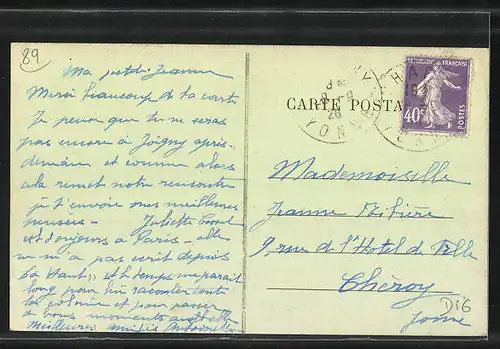 89
Ma petite Jeanne
Merci beaucoup de ta carte
Je pense que tu ne seras
pas encore à Joigny après-
demain et comme alors
cela remet notre rencontre
je t'envoie mes meilleures
pensées - Juliette
est toujours à Paris - elle
ne m'a pas écrit depuis
"Là Haut" et le temps me parait
long pour lui raconter toute
la colonie et pour passer
de bons moments avec elle
Meilleures amitiés
CARTE POSTA
YONNE
REPUBLIQUE FRANÇAISE
40c
POSTES
Mademoiselle
Jeanne
9, rue de l'Hotel de Ville
Chéroy
Yonne
D16